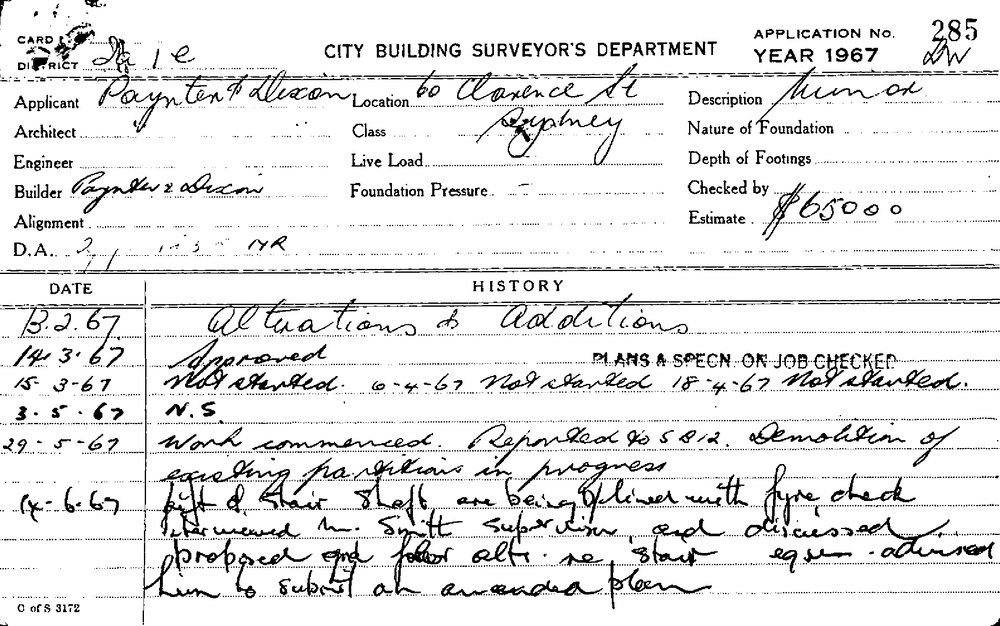 CARD
DISTRICT 1 e
CITY BUILDING SURVEYOR'S DEPARTMENT
APPLICATION No. 285
YEAR 1967
Applicant Paynter & Dixon Location 60 Clarence St Description Minor
Architect Class Sydney Nature of Foundation
Engineer Live Load Depth of Footings
Builder Paynter & Dixon Foundation Pressure - Checked by
Alignment Estimate $65000
D.A.
DATE HISTORY
13.2.67 Alterations & Additions
14.3.67 Approved PLANS & SPECN. ON JOB CHECKED
15-3-67 Not started. 6-4-67 Not started 18-4-67 Not started.
3.5.67 N.S
29-5-67 Work commenced. Reported to S B 12. Demolition of
existing partitions in progress
14-6-67 Lift & Stair Shaft are being lined with fyre check
interviewed Mr. Smith Supervisor, and discussed
proposed grd floor alts. re stair advised
him to submit an amended plan
C of S 3172